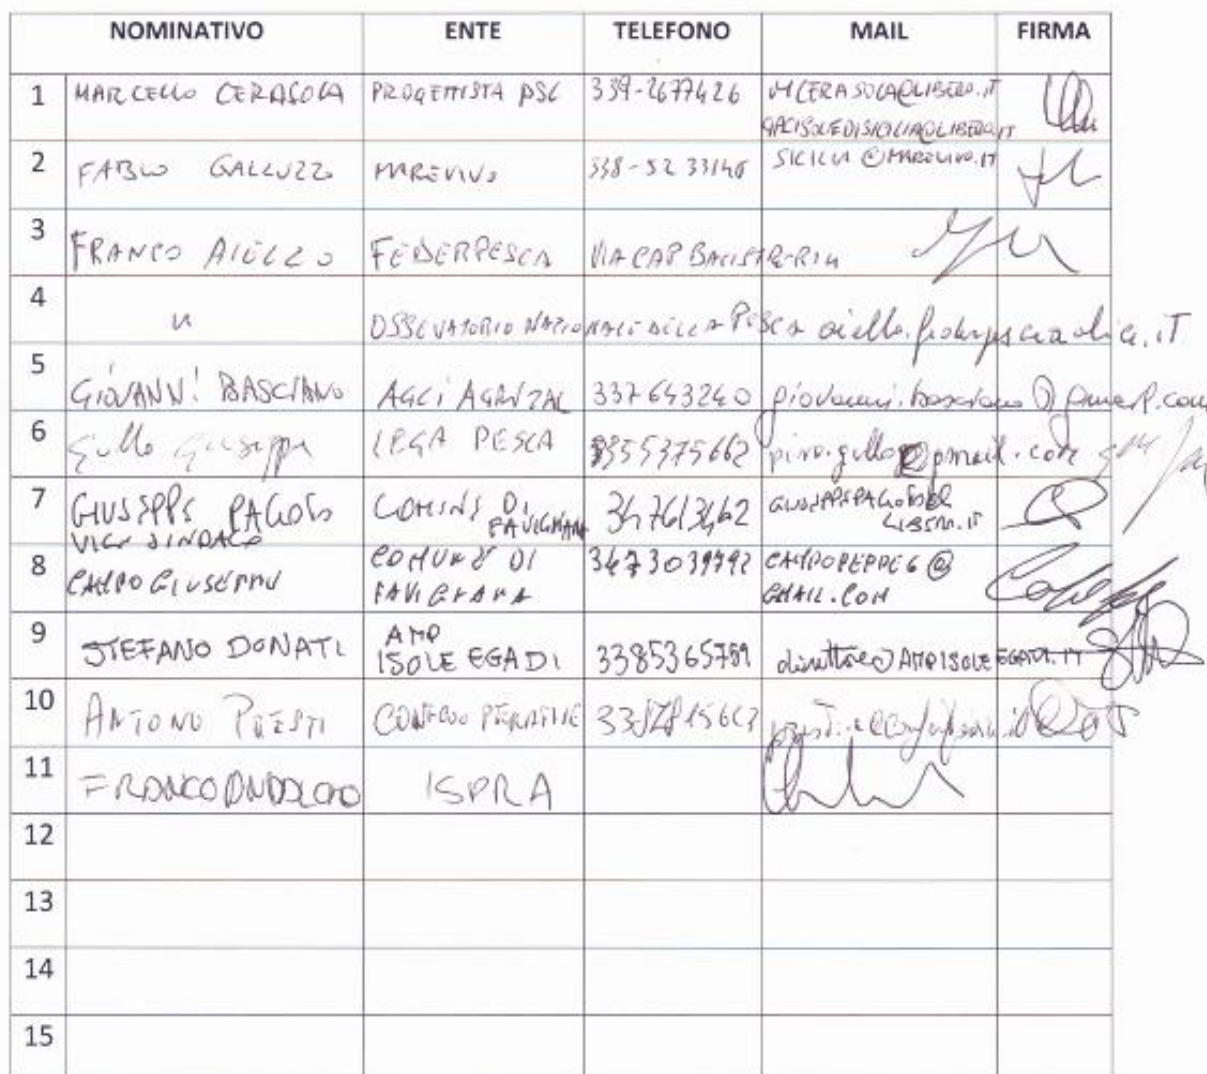 NOMINATIVO ENTE TELEFONO MAIL FIRMA
1 MARCELLO CERASOLA PROGETTISTA PSL 339-2677426 MCERASOLA@LIBERO.IT
GACISOLEDISICILIA@LIBERO.IT
2 FABIO GALLUZZO MAREVIVO 338-5233146 SICILIA@MAREVIVO.IT
3 FRANCO AIELLO FEDERPESCA VIA CAP
4 OSSERVATORIO NAZIONALE DELLA PESCA
5 GIOVANNI BASCIANO AGCI AGRITAL 337643240 giovanni.basciano@gmail.com
6 Gullo Giuseppe LEGA PESCA 3355375662 pino.gullo@gmail.com
7 GIUSEPPE PAGOTO COMUNE DI FAVIGNANA 347613462 GIUSEPPEPAGOTO@
LIBERO.IT
VICE SINDACO
8 CAMPO GIUSEPPE COMUNE DI 3473039792 CAMPOPEPPE6@
FAVIGNANA GMAIL.COM
9 STEFANO DONATI AMP
ISOLE EGADI 3385365759 direttore@AMPISOLEEGADI.IT
10 ANTONIO PRESTI
11 FRANCO ANDALORO ISPRA
12
13
14
15